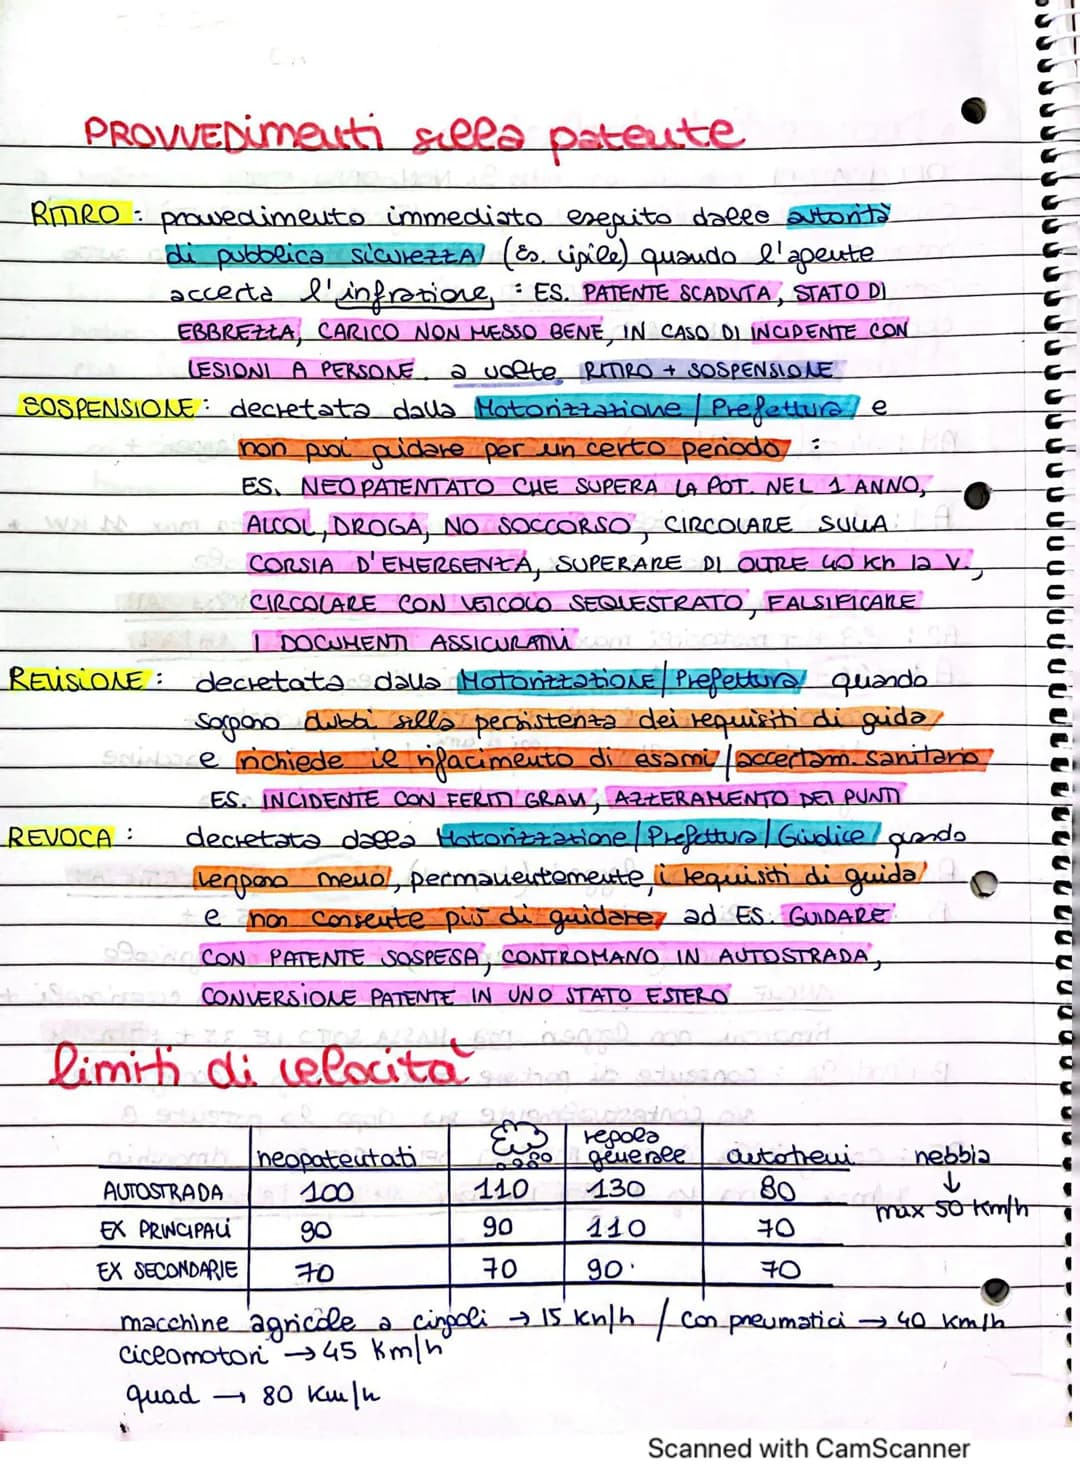 PROVVEDimenti sulla patente
RITIRO : provvedimento immediato eseguito dalle autorità
di pubblica sicurezza (es. vigile) quando l'agente
accerta l'infrazione, : ES. PATENTE SCADUTA, STATO DI
EBBREZZA, CARICO NON MESSO BENE, IN CASO DI INCIDENTE CON
LESIONI A PERSONE. a volte RITIRO + SOSPENSIONE
SOSPENSIONE : decretata dalla Motorizzazione / Prefettura e
non puoi guidare per un certo periodo :
ES. NEOPATENTATO CHE SUPERA LA POT. NEL 1 ANNO,
ALCOL, DROGA, NO SOCCORSO, CIRCOLARE SULLA
CORSIA D'EMERGENZA, SUPERARE DI OLTRE 40 Kh la V.,
CIRCOLARE CON VEICOLO SEQUESTRATO, FALSIFICARE
I DOCUMENTI ASSICURATIVI
REVISIONE : decretata dalla MOTORIZZAZIONE / Prefettura quando
sorgono dubbi sulla persistenza dei requisiti di guida
e richiede il rifacimento di esami / accertam. sanitario
ES. INCIDENTE CON FERITI GRAVI, AZZERAMENTO DEI PUNTI
REVOCA : decretata dalla Motorizzazione / Prefettura / Giudice quando
vengono meno, permanentemente, i requisiti di guida
e non consente più di guidare, ad ES. GUIDARE
CON PATENTE SOSPESA, CONTROMANO IN AUTOSTRADA,
CONVERSIONE PATENTE IN UNO STATO ESTERO
limiti di velocità
neopatentati regola generale autotreni nebbia
AUTOSTRADA 100 110 130 80 ↓
max 50 Km/h
EX PRINCIPALI 90 90 110 70
EX SECONDARIE 70 70 90 70
macchine agricole a cingoli → 15 Km/h / con pneumatici → 40 Km/h
ciclomotori → 45 Km/h
quad → 80 Km/h
Scanned with CamScanner